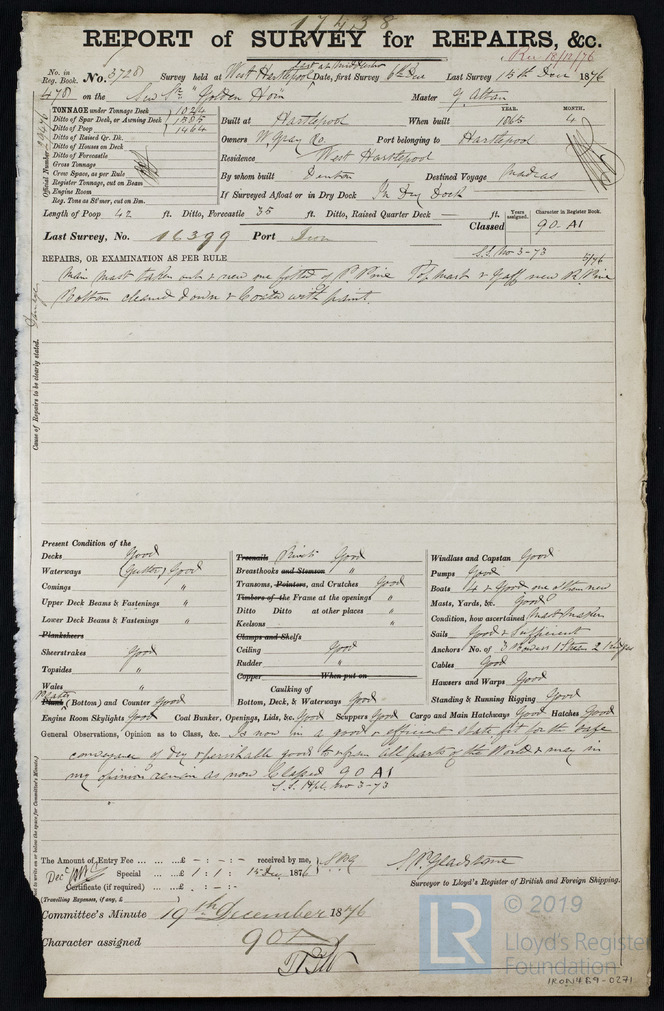 17438
REPORT of SURVEY for REPAIRS, &c.
Rec 18/12/76
No. in Reg. Book. No. 3728 Survey held at West Hartlepool Date, first Survey 6th Dec Last Survey 15th Dec 1876
478 on the "Golden Horn" Master J. Allan
TONNAGE under Tonnage Deck
Ditto of Spar Deck, or Awning Deck
Ditto of Poop 1464
Ditto of Raised Qr. Dk.
Ditto of Houses on Deck
Ditto of Forecastle
Gross Tonnage
Crew Space, as per Rule
Register Tonnage, cut on Beam
Engine Room
Reg. Tons as St'mer, cut on Bm.
Official Number
YEAR. MONTH.
Built at Hartlepool When built 1865 4
Owners W. Gray & Co. Port belonging to Hartlepool
Residence West Hartlepool
By whom built Denton Destined Voyage Madras
If Surveyed Afloat or in Dry Dock In Dry Dock
Length of Poop 42 ft. Ditto, Forecastle 35 ft. Ditto, Raised Quarter Deck — ft.
Classed Years assigned. Character in Register Book.
90 A1
Last Survey, No. 16399 Port Iron
S.S. No 3-73
5/76
REPAIRS, OR EXAMINATION AS PER RULE
Main mast taken out & new one fitted of P. Pine Top mast & Gaff new R. Pine
Bottom cleaned down & Coated with paint.
Cause of Repairs to be clearly stated.
Present Condition of the
Decks Good
Waterways (Gutter) Good
Comings "
Upper Deck Beams & Fastenings "
Lower Deck Beams & Fastenings "
Planksheers
Sheerstrakes Good
Topsides "
Wales "
Plank (Bottom) and Counter Good
Treenails Rivets Good
Breasthooks and Stemson "
Transoms, Pointers, and Crutches Good
Timbers of the Frame at the openings "
Ditto Ditto at other places "
Keelsons "
Clamps and Shelfs
Ceiling Good
Rudder "
Copper When put on
Caulking of
Bottom, Deck, & Waterways Good
Windlass and Capstan Good
Pumps Good
Boats 4 & Good one of them new
Masts, Yards, &c. Good
Condition, how ascertained Mast Maker
Sails Good & Sufficient
Anchors No. of 3 Bowers 1 Stream 2 Kedges
Cables Good
Hawsers and Warps Good
Standing & Running Rigging Good
Engine Room Skylights Good Coal Bunker, Openings, Lids, &c. Good Scuppers Good Cargo and Main Hatchways Good Hatches Good
General Observations, Opinion as to Class, &c. Is now in a good & efficient state fit for the safe
conveyance of dry & perishable goods to & from all parts of the World & may in
my opinion remain as now Classed 90 A1
S.S. Hpl. No 3-73
The Amount of Entry Fee ... ... ...£ - : - : - received by me,
Dec Special ... ...£ 1 : 1 : 15 Dec 1876
Certificate (if required) ... ...£ - : - : -
(Travelling Expenses, if any, £ )
Gladstone
Surveyor to Lloyd's Register of British and Foreign Shipping.
Committee's Minute 19th December 1876
Character assigned 90A1
© 2019
LR
Lloyd's Register
Foundation
IRON469-0271